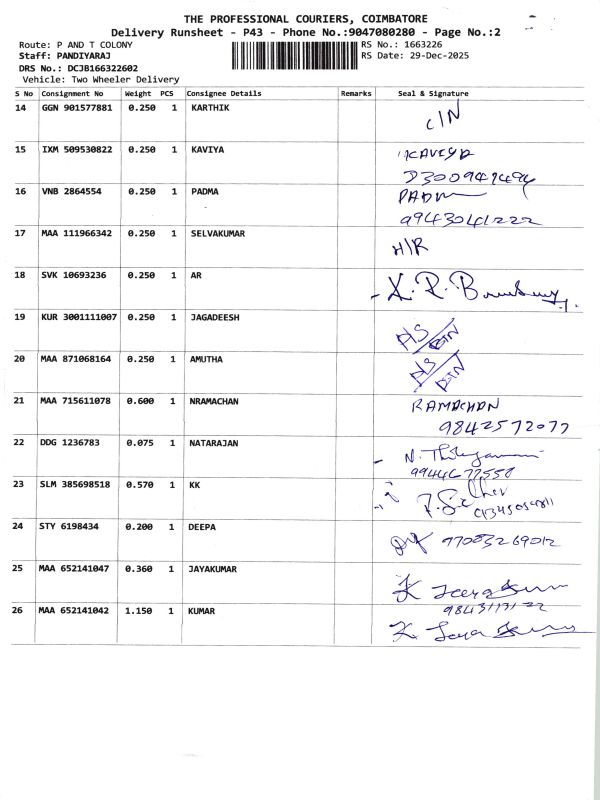 THE PROFESSIONAL COURIERS, COIMBATORE
Delivery Runsheet - P43 - Phone No.:9047080280 - Page No.:2
Route: P AND T COLONY RS No.: 1663226
Staff: PANDIYARAJ RS Date: 29-Dec-2025
DRS No.: DCJB166322602
Vehicle: Two Wheeler Delivery
S No Consignment No Weight PCS Consignee Details Remarks Seal & Signature
14 GGN 901577881 0.250 1 KARTHIK C/N
15 IXM 509530822 0.250 1 KAVIYA
16 VNB 2864554 0.250 1 PADMA
9943041222
17 MAA 111966342 0.250 1 SELVAKUMAR H/R
18 SVK 10693236 0.250 1 AR
19 KUR 3001111007 0.250 1 JAGADEESH
20 MAA 871068164 0.250 1 AMUTHA
21 MAA 715611078 0.600 1 NRAMACHAN RAMACHAN
9842572077
22 DDG 1236783 0.075 1 NATARAJAN
23 SLM 385698518 0.570 1 KK
24 STY 6198434 0.200 1 DEEPA 77083269012
25 MAA 652141047 0.360 1 JAYAKUMAR
26 MAA 652141042 1.150 1 KUMAR